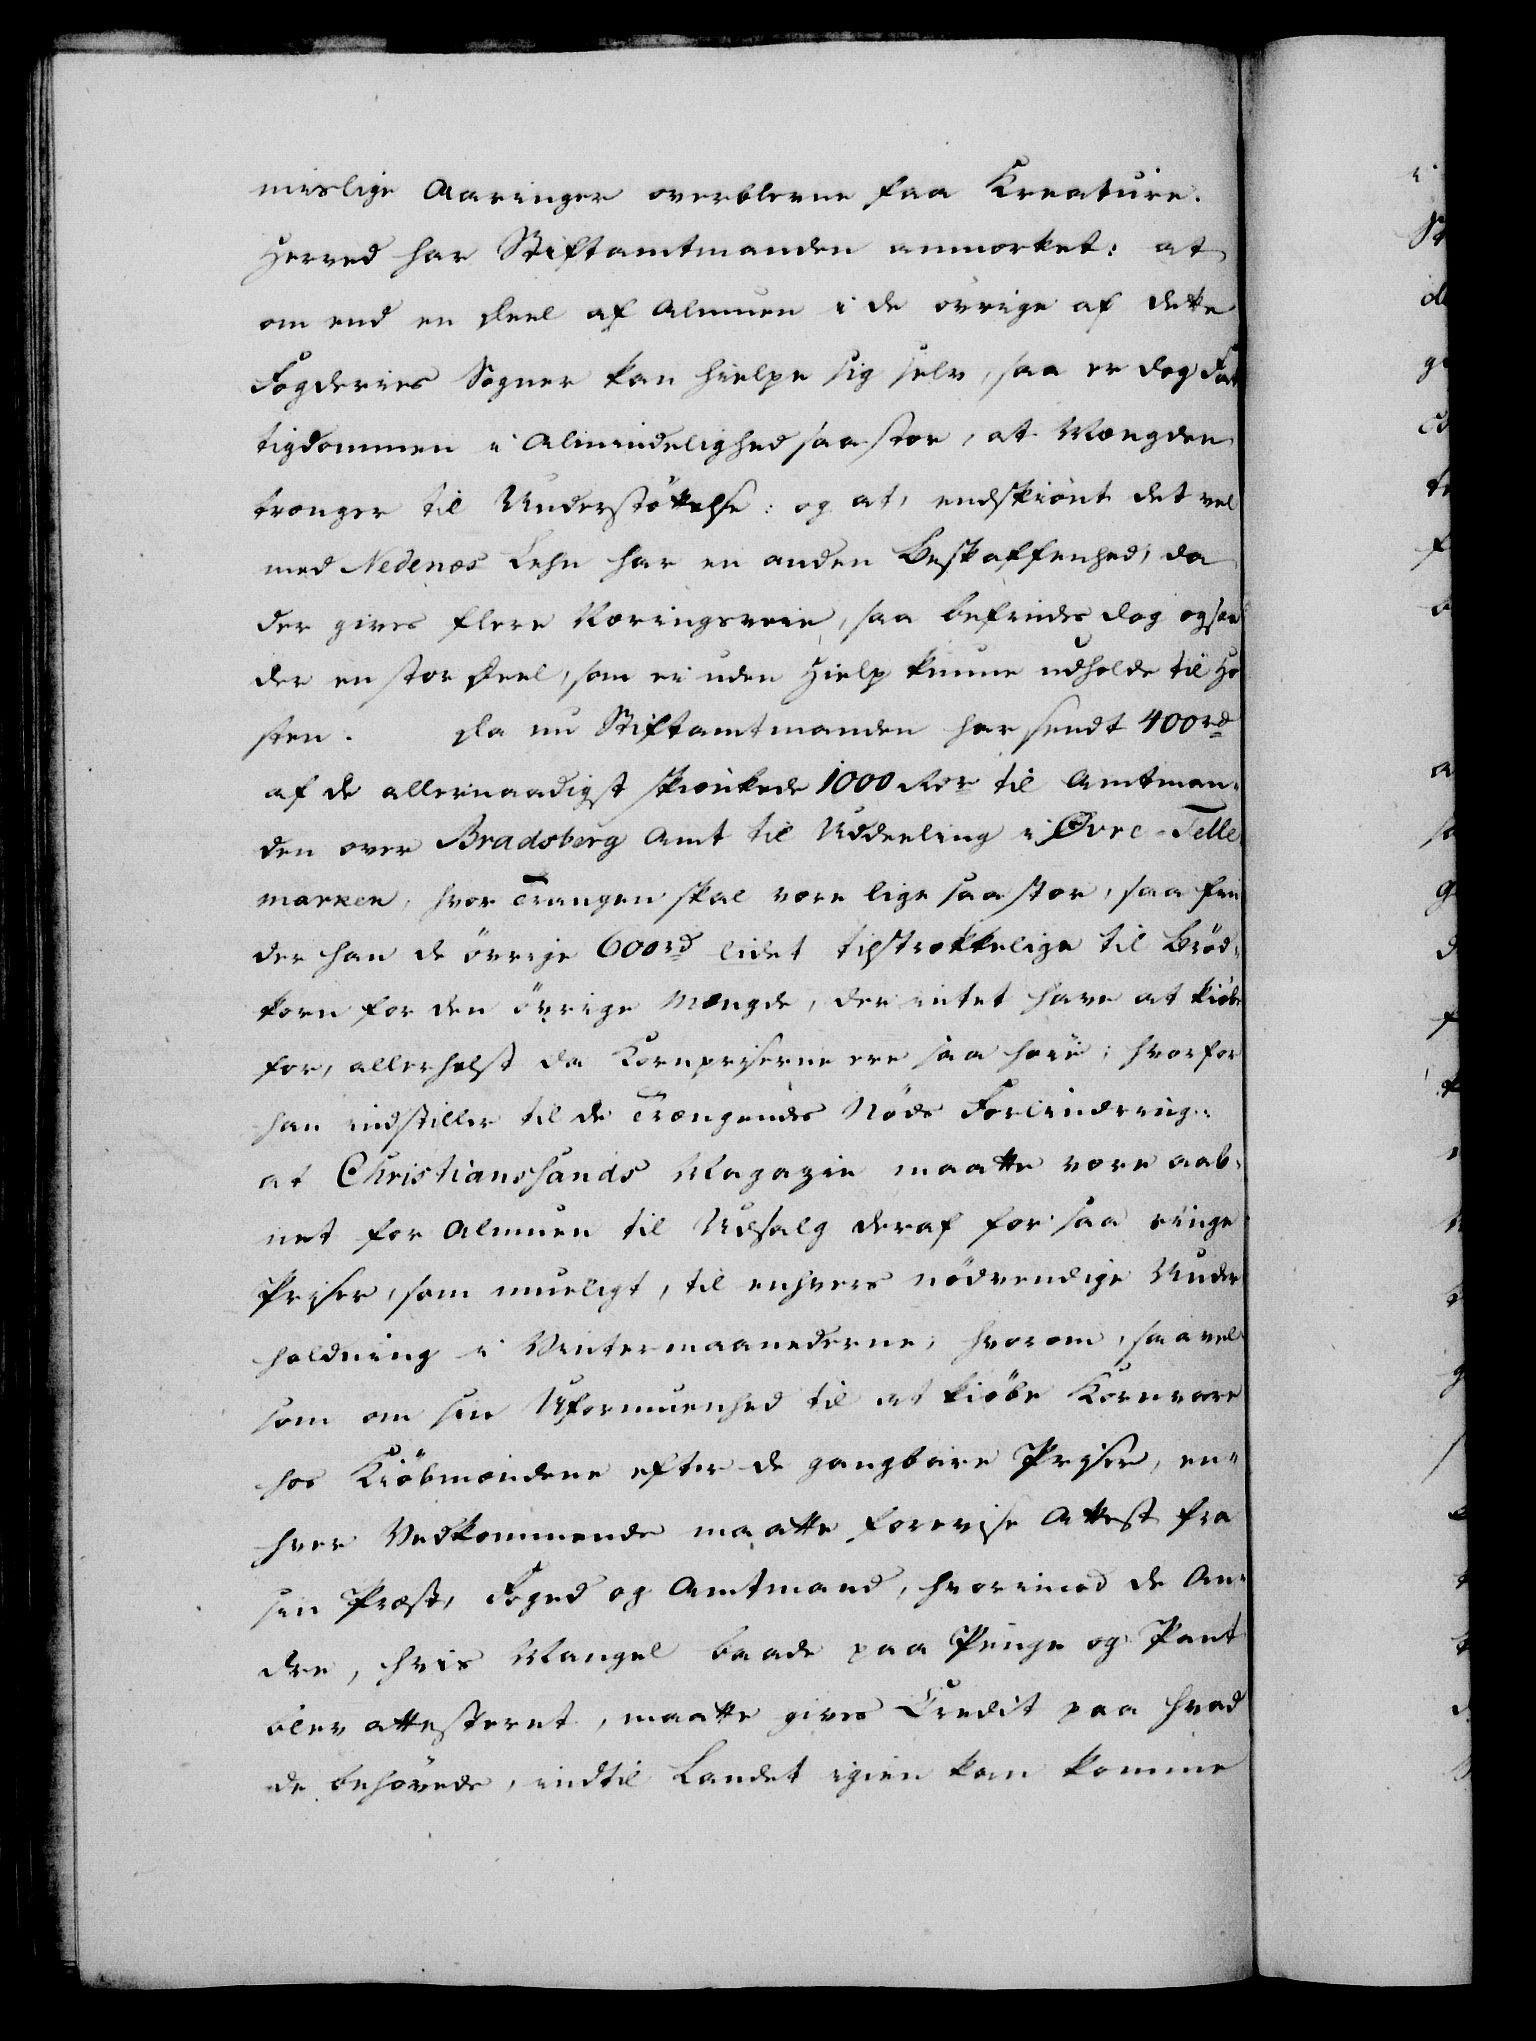 mislige Aaringer overblevne faa Kreature.
Herved har Stiftamtmanden anmærket: at
om end en Deel af Almuen i de övrige af dette
Fogderies Sogner kan hielpe sig selv, saa er dog Fat
tigdommen i Almindelighed saa stor, at Mængden
trænger til Understöttelse: og at, endskiönt det vel
med Nedenæs Lehn har en anden Beskaffenhed, da
der gives flere Næringsveie, saa befindes dog ogsaa
der en stor Deel, som ei uden Hielp kunne udholde til Hö
sten. Da nu Stiftamtmanden har sendt 400rd
af de allernaadigst skiænkede 1000 Rdr til Amtman„
den over Bradsberg Amt til Uddeeling i Øvre-Telle
marken, hvor Trangen skal være lige saa stor, saa fin
der han de övrige 600rd lidet tilstrækkelige til Bröd„
korn for den övrige Mængde, der intet have at kiöbe
for, allerhelst da Kornpriserne ere saa höie; hvorfor
han indstiller til de Trængendes Nöds Forlindring:
at Christianssands Magazin maatte være aab„
net for Almuen til Udsalg deraf for saa ringe
Priser, som mueligt, til enhvers nödvendige Under
holdning i Vintermaanederne; hvorom, saavel
som om sin Uformuenhed til at kiöbe Kornvare
hos Kiöbmændene efter de gangbare Priser, en„
hver Vedkommende maatte forevise Attest fra
sin Præst, Foged og Amtmand, hvorimod de An„
dre, hvis Mangel baade paa Penge og Pant
blev attesteret, maatte gives Credit paa hvad
de behövede, indtil Landet igien kan komme